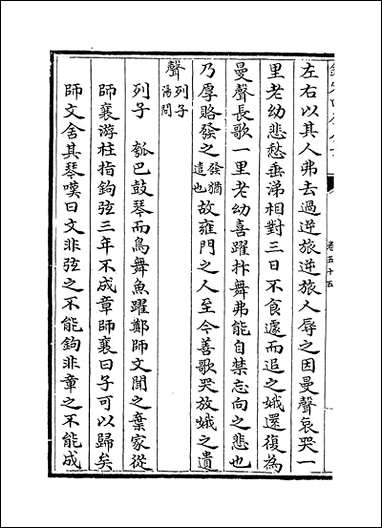 左右以其人弗去過逆旅逆旅人辱之因曼聲哀哭一
里老幼悲愁垂涕相對三日不食遽而追之娥還復為
曼聲長歌一里老幼喜躍抃舞弗能自禁忘向之悲也
乃厚賂發之發猶遣也故雍門之人至今善歌哭放娥之遺
聲列子湯問
列子　瓠巴鼓琴而鳥舞魚躍鄭師文聞之棄家從
師襄游柱指鉤弦三年不成章師襄曰子可以歸矣
師文舍其琴嘆曰文非弦之不能鉤非章之不能成
卷五十五